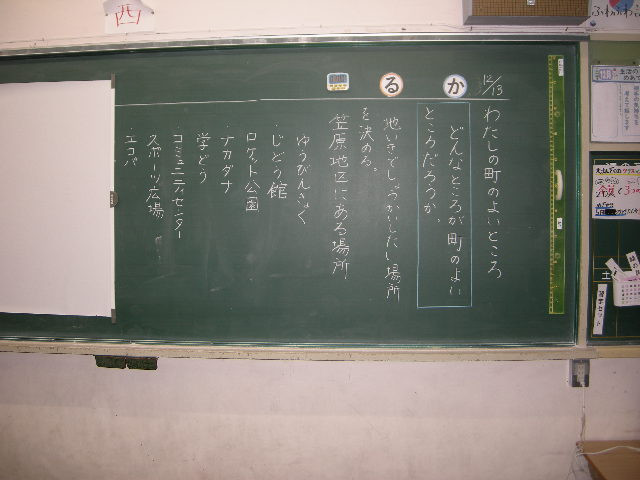 西
12/13
か
る
わたしの町のよいところ
どんなところが町のよい
ところだろうか。
地いきでしょうかいしたい場所
を決める。
笠原地区にある場所
・ゆうびんきょく
・じどう館
・ロケット公園
・ナカダナ
・学どう
・コミュニティセンター
・スポーツ広場
・エコパ